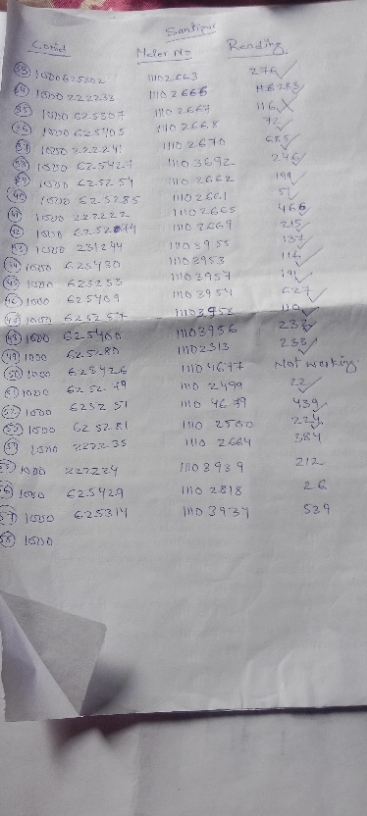 Santipur
Conid Meter No Reading
33 1000625202 11102663 276 ✓
34 1000222233 11102666
35 1000625307 11102667 116
36 1000625405 11102668 72 ✓
37 1000222241 11102670 625 ✓
38 1000625427 11103692 246 ✓
39 1000625254 11102662 199 ✓
40 1000625285 11102661 51 ✓
41 1000222222 11102665 466 ✓
42 1000 11102669 215 ✓
43 1000231244 11103955 137 ✓
44 1000625430 11103953 116 ✓
1000625233 11103957 191 ✓
46 1000625409 11103954 627 ✓
1000625257 110 ✓
48 1000625400 11103956 232 ✓
49 1000625280 11102313 233 ✓
50 1000625426 11104677 Not working.
51 1000625279 11102499 22 ✓
52 1000625251 11104679 439 ✓
53 1000625281 11102500 224 ✓
54 1000222235 11102664 384
55 1000222224 11103939 212
56 1000625429 11102818 26
57 1000625314 11103937 539
58 1000